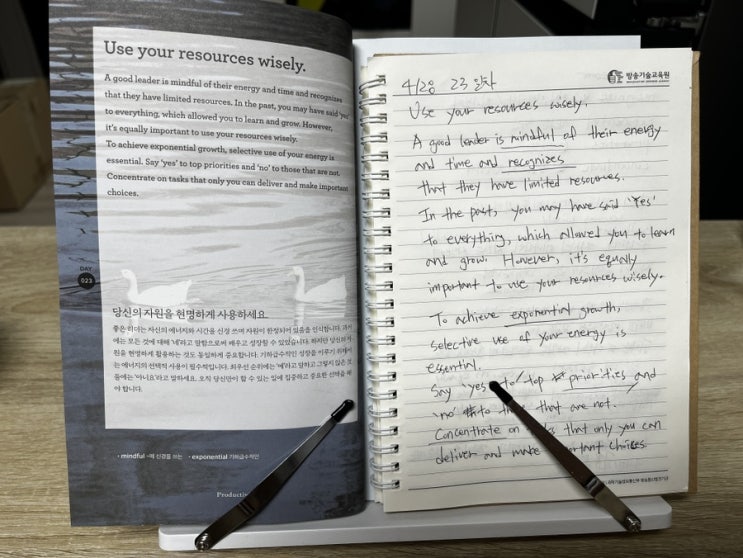 Use your resources wisely.
A good leader is mindful of their energy and time and recognizes
that they have limited resources. In the past, you may have said 'yes'
to everything, which allowed you to learn and grow. However,
it's equally important to use your resources wisely.
To achieve exponential growth, selective use of your energy is
essential. Say 'yes' to top priorities and 'no' to those that are not.
Concentrate on tasks that only you can deliver and make important
choices.
DAY
023
당신의 자원을 현명하게 사용하세요
좋은 리더는 자신의 에너지와 시간을 신경 쓰며 자원이 한정되어 있음을 인식합니다. 과거
에는 모든 것에 대해 '네'라고 말함으로써 배우고 성장할 수 있었습니다. 하지만 당신의 자
원을 현명하게 활용하는 것도 동일하게 중요합니다. 기하급수적인 성장을 이루기 위해서
는 에너지의 선택적 사용이 필수적입니다. 최우선 순위에는 '예'라고 말하고 그렇지 않은 것
들에는 '아니요'라고 말하세요. 오직 당신만이 할 수 있는 일에 집중하고 중요한 선택을 해
야 합니다.
• mindful ~에 신경을 쓰는 • exponential 기하급수적인
Producti
방송기술교육원
4/28 23일차
Use your resources wisely.
A good leader is mindful of their energy
and time and recognizes
that they have limited resources.
In the past, you may have said 'Yes'
to everything, which allowed you to learn
and grow. However, it's equally
important to use your resources wisely.
To achieve exponential growth,
selective use of your energy is
essential.
Say 'yes' to top priorities and
'no' to that are not.
Concentrate on that only you can
deliver and make important choices.